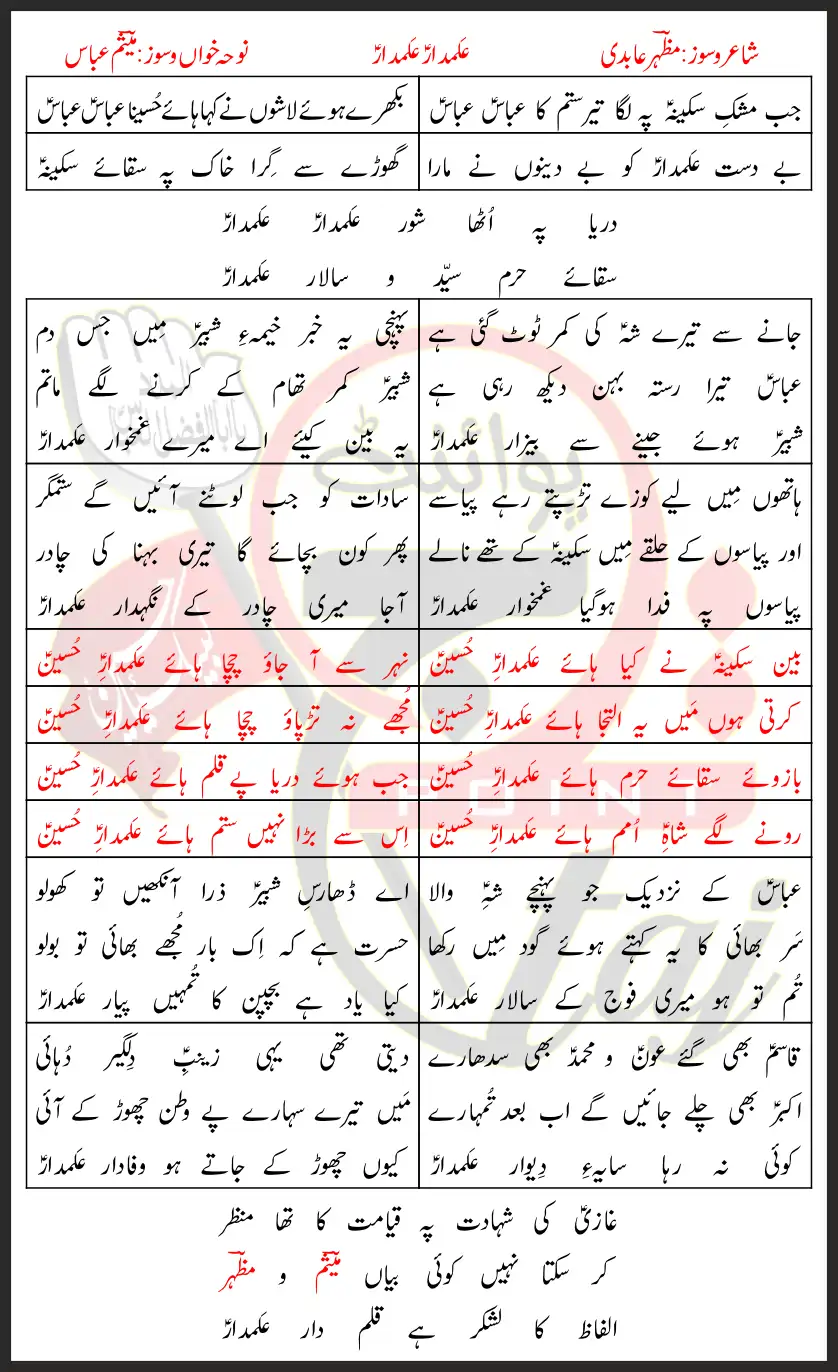 شاعر وسوز: مظہر عابدی
علمدارؑ علمدارؑ
نوحہ خواں وسوز: میثم عباس
جب مشکِ سکینہؑ پہ لگا تیر ستم کا عباسؑ عباسؑ
بکھرے ہوئے لاشوں نے کہا ہائے حُسینا عباسؑ عباسؑ
بے دست علمدارؑ کو بے دینوں نے مارا
گھوڑے سے گِرا خاک پہ سقائے سکینہؑ
دریا پہ اُٹھا شور علمدارؑ علمدارؑ
سقائے حرم سیّد و سالار علمدارؑ
جانے سے تیرے شہؑ کی کمر ٹوٹ گئی ہے
عباسؑ تیرا رستہ بہن دیکھ رہی ہے
شبیرؑ ہوئے جینے سے بیزار علمدارؑ
پہنچی یہ خبر خیمہءِ شبیرؑ مِیں جس دم
شبیرؑ کمر تھام کے کرنے لگے ماتم
یہ بین کیئے اے میرے غمخوار علمدارؑ
ہاتھوں مِیں لیے کوزے تڑپتے رہے پیاسے
اور پیاسوں کے حلقے مِیں سکینہؑ کے تھے نالے
پیاسوں پہ فدا ہوگیا غمخوار علمدارؑ
سادات کو جب لوٹنے آئیں گے ستمگر
پھر کون بچائے گا تیری بہنا کی چادر
آجا میری چادر کے نگہدار علمدارؑ
بین سکینہؑ نے کیا ہائے علمدارِؑ حُسینؑ
نہر سے آ جاؤ چچا ہائے علمدارِؑ حُسینؑ
کرتی ہوں مَیں یہ التجا ہائے علمدارِؑ حُسینؑ
مُجھے نہ تڑپاؤ چچا ہائے علمدارِؑ حُسینؑ
بازوئے سقائے حرم ہائے علمدارِؑ حُسینؑ
جب ہوئے دریا پے قلم ہائے علمدارِؑ حُسینؑ
رونے لگے شاہِؑ اُمم ہائے علمدارِؑ حُسینؑ
اِس سے بڑا نہیں ستم ہائے علمدارِؑ حُسینؑ
عباسؑ کے نزدیک جو پہنچے شہِؑ والا
سَر بھائی کا یہ کہتے ہوئے گود مِیں رکھا
تُم تو ہو میری فوج کے سالار علمدارؑ
اے ڈھارسِ شبیرؑ ذرا آنکھیں تو کھولو
حسرت ہے کہ اِک بار مُجھے بھائی تو بولو
کیا یاد ہے بچپن کا تُمہیں پیار علمدارؑ
قاسمؑ بھی گئے عونؑ و محمدؑ بھی سدھارے
اکبرؑ بھی چلے جائیں گے اب بعد تُمہارے
کوئی نہ رہا سایہءِ دِیوار علمدارؑ
دیتی تھی یہی زینبِؑ دِلگیر دُہائی
مَیں تیرے سہارے پے وطن چھوڑ کے آئی
کیوں چھوڑ کے جاتے ہو وفادار علمدارؑ
غازیؑ کی شہادت پہ قیامت کا تھا منظر
کر سکتا نہیں کوئی بیاں میثم و مظہر
الفاظ کا لشکر ہے قلم دار علمدارؑ
پوائنٹ
POINT
taj